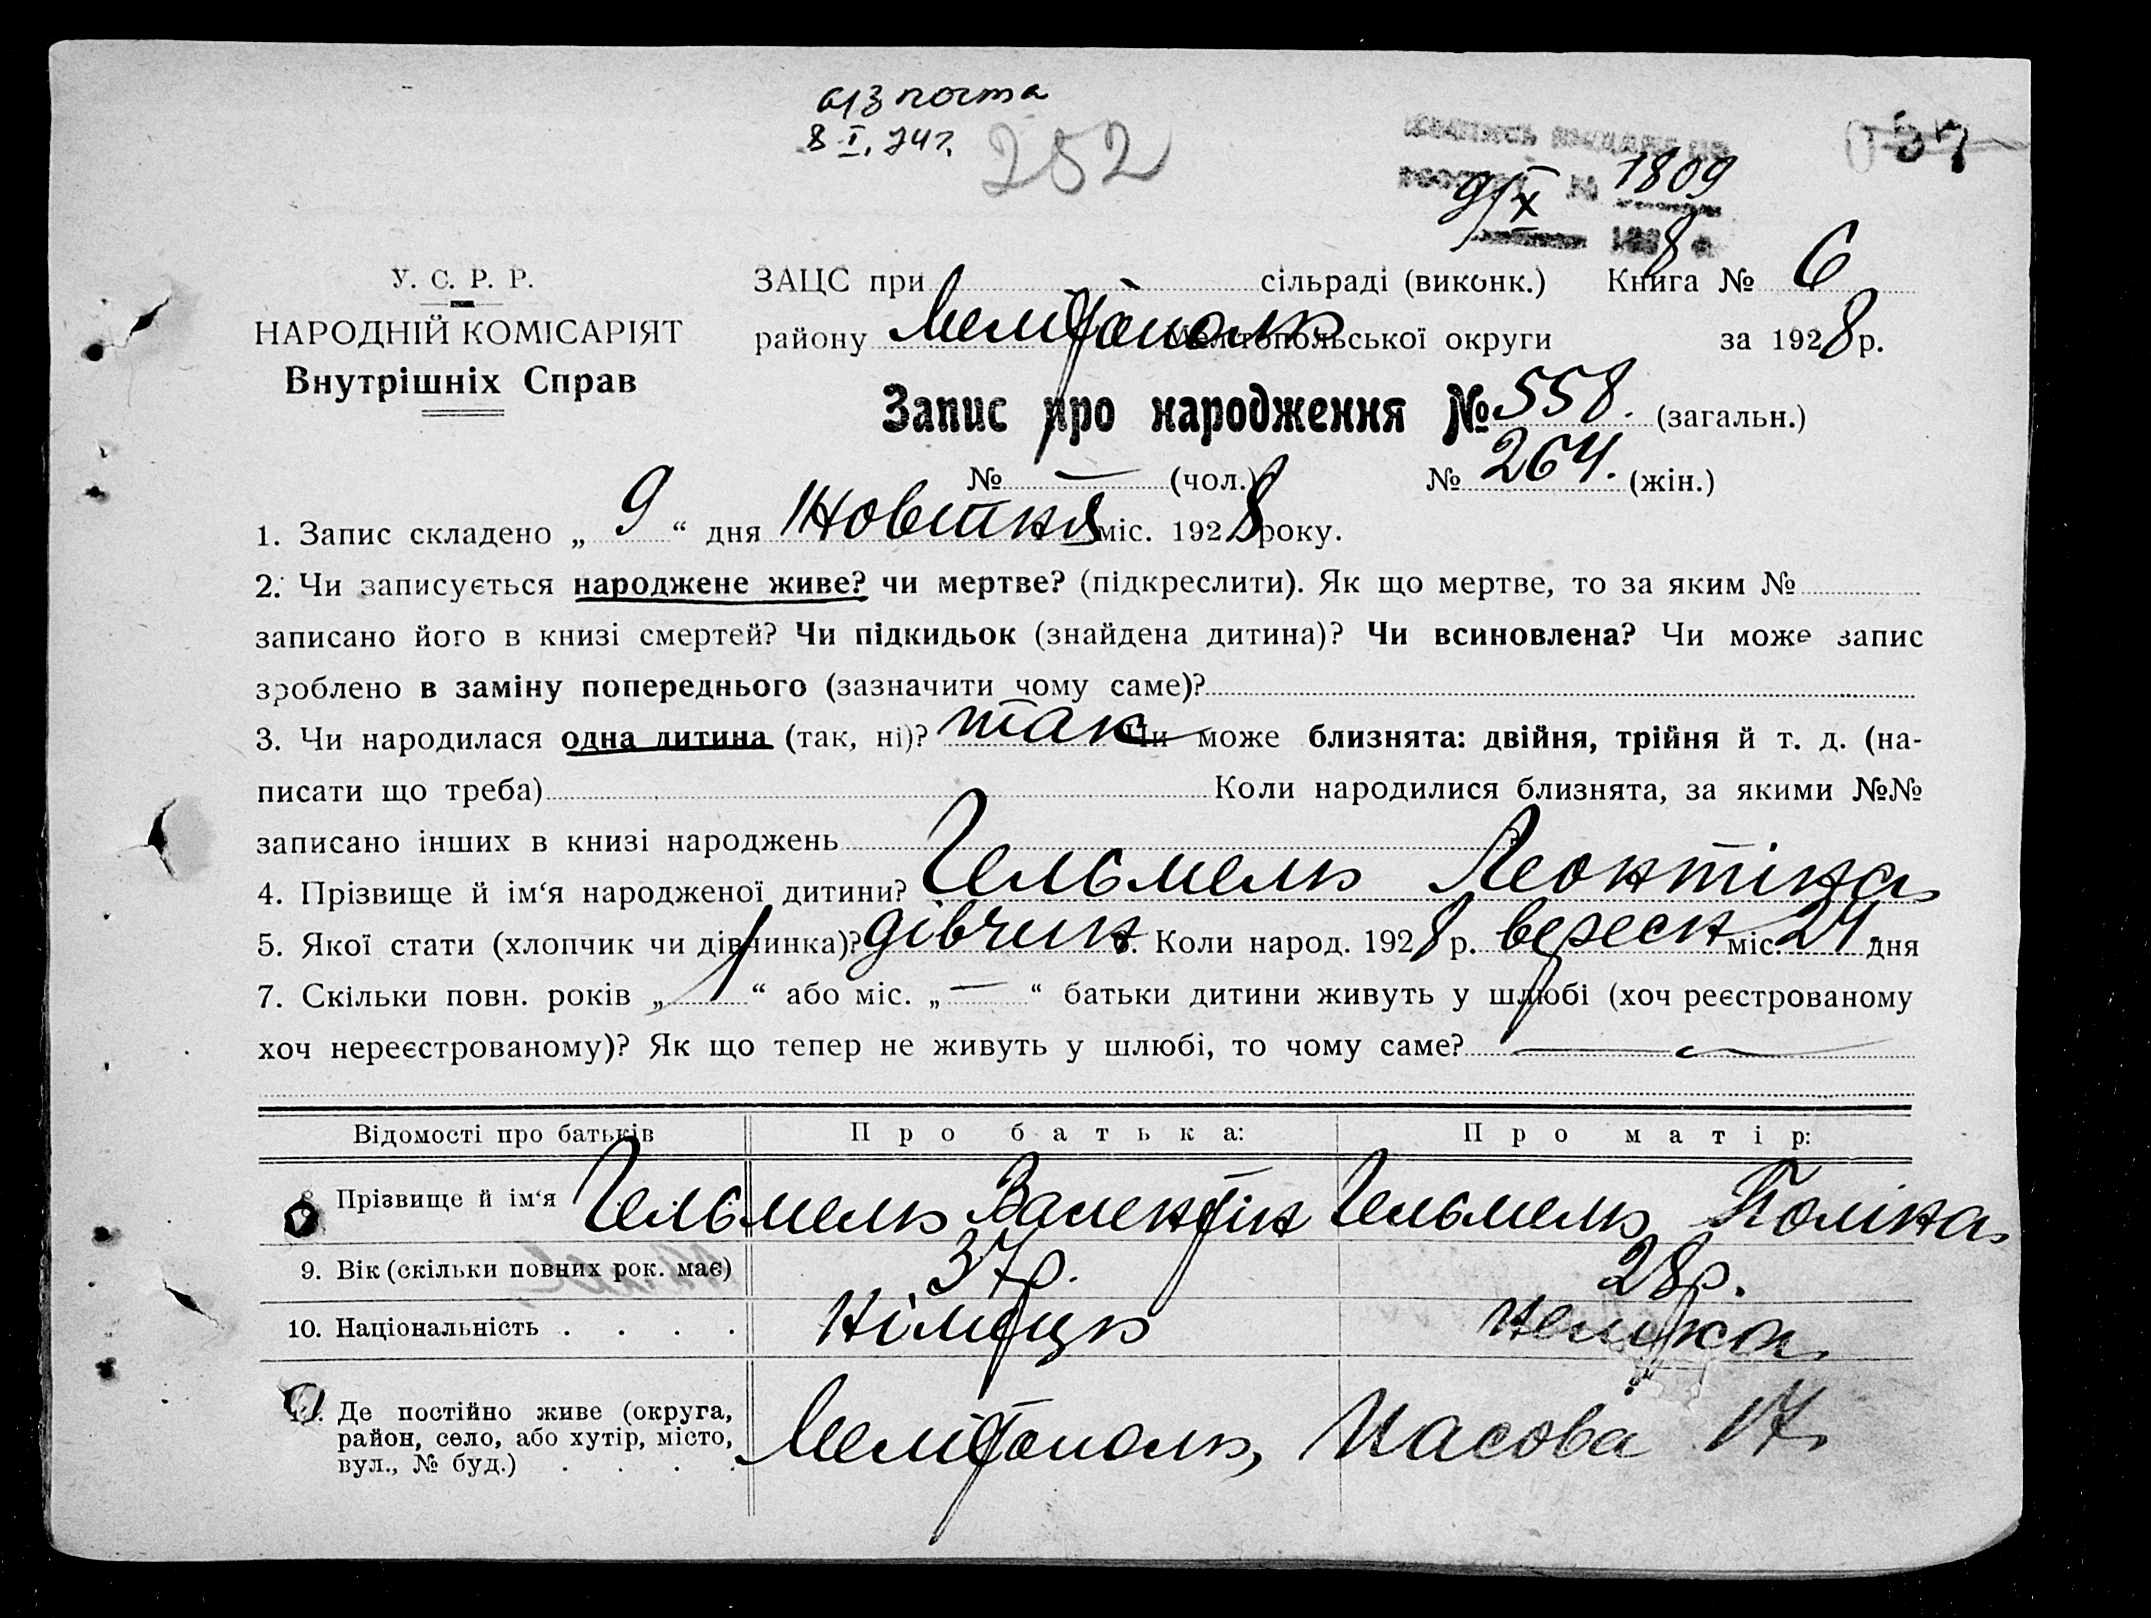 пошта
8 I. 74 г.
252
37
9/X 1809
У. С. Р. Р.
НАРОДНІЙ КОМІСАРІЯТ
Внутрішніх Справ
ЗАЦС при сільраді (виконк.) Книга № 6
району Мелітополь Мелітопольської округи за 1928 р.
Запис про народження № 558. (загальн.)
№ — (чол.) № 264. (жін.)
1. Запис складено „ 9 “ дня Жовтня міс. 1928 року.
2. Чи записується народжене живе? чи мертве? (підкреслити). Як що мертве, то за яким №
записано його в книзі смертей? Чи підкидьок (знайдена дитина)? Чи всиновлена? Чи може запис
зроблено в заміну попереднього (зазначити чому саме)?
3. Чи народилася одна дитина (так, ні)? так Чи може близнята: двійня, трійня й т. д. (на-
писати що треба) Коли народилися близнята, за якими №№
записано інших в книзі народжень
4. Прізвище й ім‘я народженої дитини? Гельмель Леонтіна
5. Якої стати (хлопчик чи дівчинка)? дівчин. Коли народ. 1928 р. вересн міс. 24 дня
7. Скільки повн. років „ 1 “ або міс. „ — “ батьки дитини живуть у шлюбі (хоч реєстрованому
хоч нереєстрованому)? Як що тепер не живуть у шлюбі, то чому саме? —
Відомості про батьків Про батька: Про матір:
8 Прізвище й ім‘я Гельмель Валентін Гельмель Поліна
9. Вік (скільки повних рок. має) 37 р. 28 р.
10. Національність . . . . німець немка
11. Де постійно живе (округа,
район, село, або хутір, місто,
вул., № буд.) . . . . Мелітополь, Часова 17